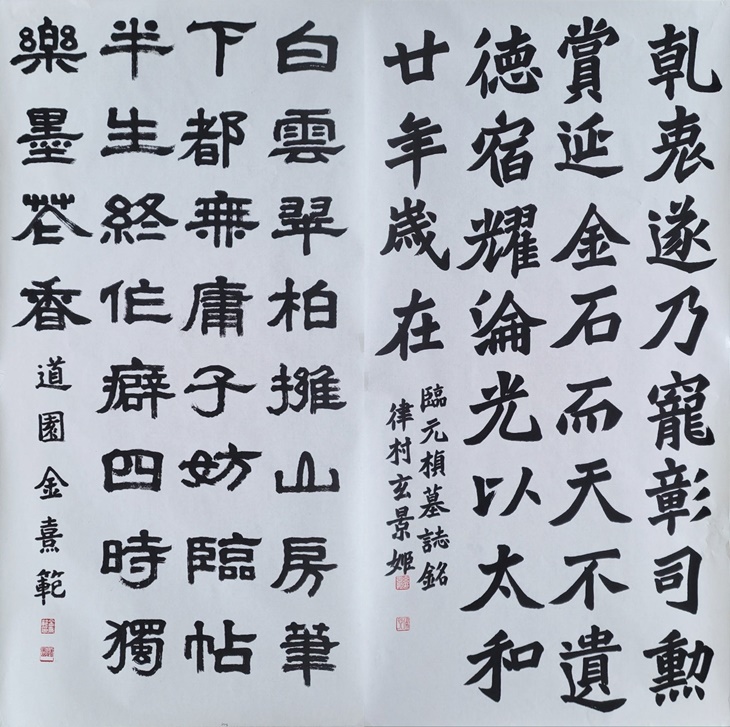 乹衷遂乃寵彰司勲
賞延金石而天不遺
德宿耀淪光以太和
廿年歲在
臨元楨墓誌銘
律村玄景姬
白雲翠柏擁山房筆
下都無庸子妨臨帖
半生終作癖四時獨
樂墨花香
道園金熹範